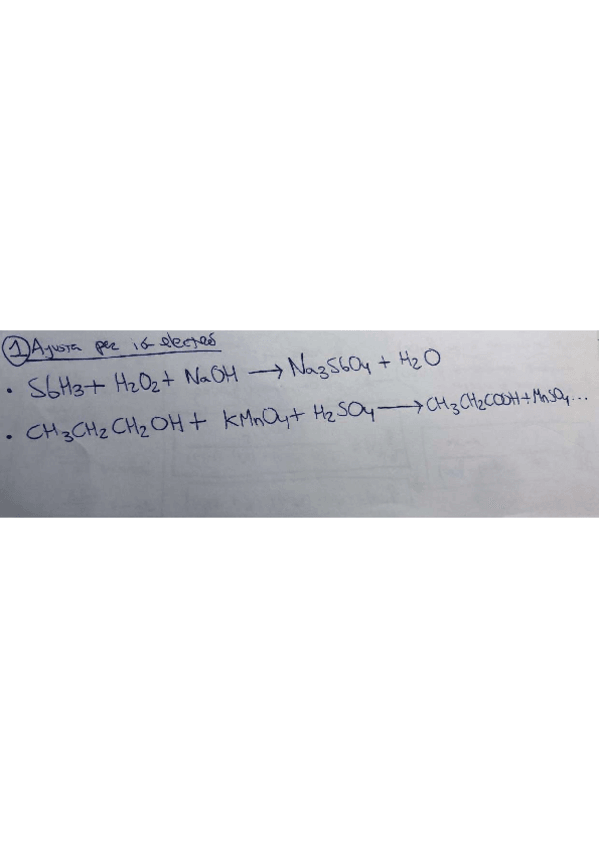 ① Ajusta per ió-electró
• SbH₃ + H₂O₂ + NaOH → Na₃SbO₄ + H₂O
• CH₃CH₂CH₂OH + KMnO₄ + H₂SO₄ → CH₃CH₂COOH + MnSO₄...